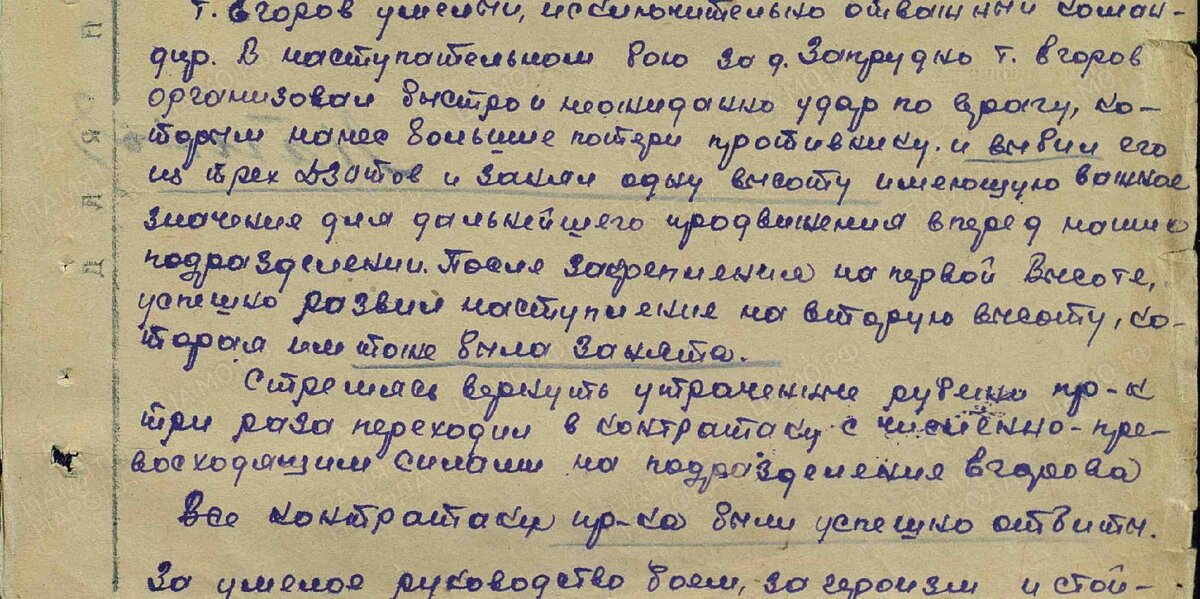 т. Егоров умелый, исключительно отважный коман-
дир. В наступательном бою за д. Запрудно т. Егоров
организовал быстро и неожиданно удар по врагу, ко-
торым нанес большие потери противнику. и выбил его
из трех ДЗотов и занял одну высоту имеющую важное
значение для дальнейшего продвижения вперед наших
подразделении. После закрепления на первой высоте,
успешно развил наступление на вторую высоту, ко-
торая им тоже была занята.
Стремясь вернуть утраченные рубежи пр-к
три раза переходил в контратаку с численно-пре-
восходящим силами на подразделения Егорова
Все контратаки пр-ка были успешно отбиты.
За умелое руководство боем, за героизм и стой-